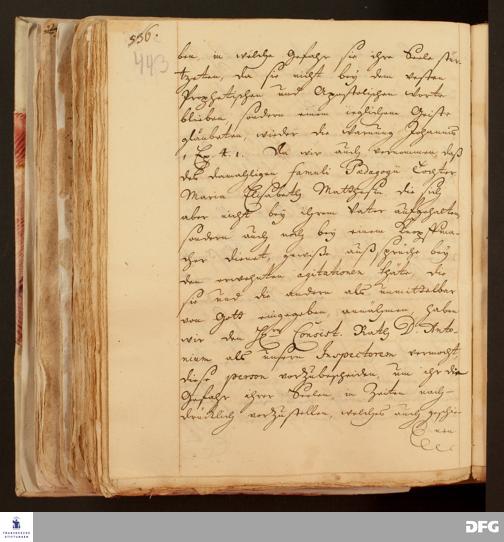 556.
443
ben, in welche Gefahr sie ihre Seele stür-
tzeten, da sie nicht bey dem vesten
Prophetischen und Apostolischen Worte
blieben, sondern einem ieglichen Geiste
glaubeten, wieder die warnung Johannis
1 Ep. 4. 1. Da wir auch vernommen, daß
des damahligen famuli Pædagogii Tochter
Maria Elisabeth die sich
aber nicht bey ihrem Vater aufgehalten,
sondern auch noch bey einem Knopffma-
cher dienet, gewiße außsprüche bey
den erwehnten agitationen thäte, die
sie und die andern als unmittelbar
von Gott eingegeben, annähmen, haben
wir den Herrn Consist. Rath D. Anto-
nium als unsern Inspectorem vermocht,
diese person vorzubescheiden, um ihr die
Gefahr ihrer Seelen in Zeiten nach-
drücklich vorzustellen, welches auch gesche-
FRANCKESCHE
STIFTUNGEN
DFG